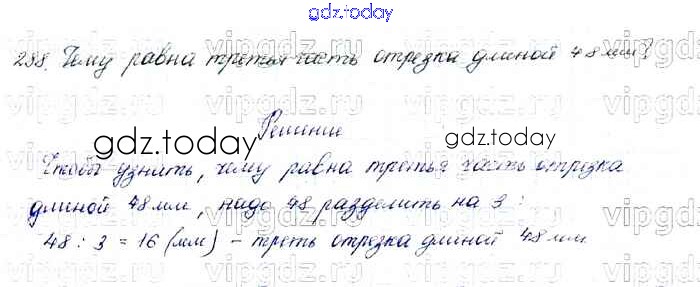 gdz.today
288. Чему равна третья часть отрезка длиной 48 мм?
Решение
gdz.today gdz.today
Чтобы узнать, чему равна третья часть отрезка
длиной 48 мм, надо 48 разделить на 3:
48 : 3 = 16 (мм) – треть отрезка длиной 48 мм.
vipgdz.ru vipgdz.ru vipgdz.ru vipgdz.ru
gdz.today